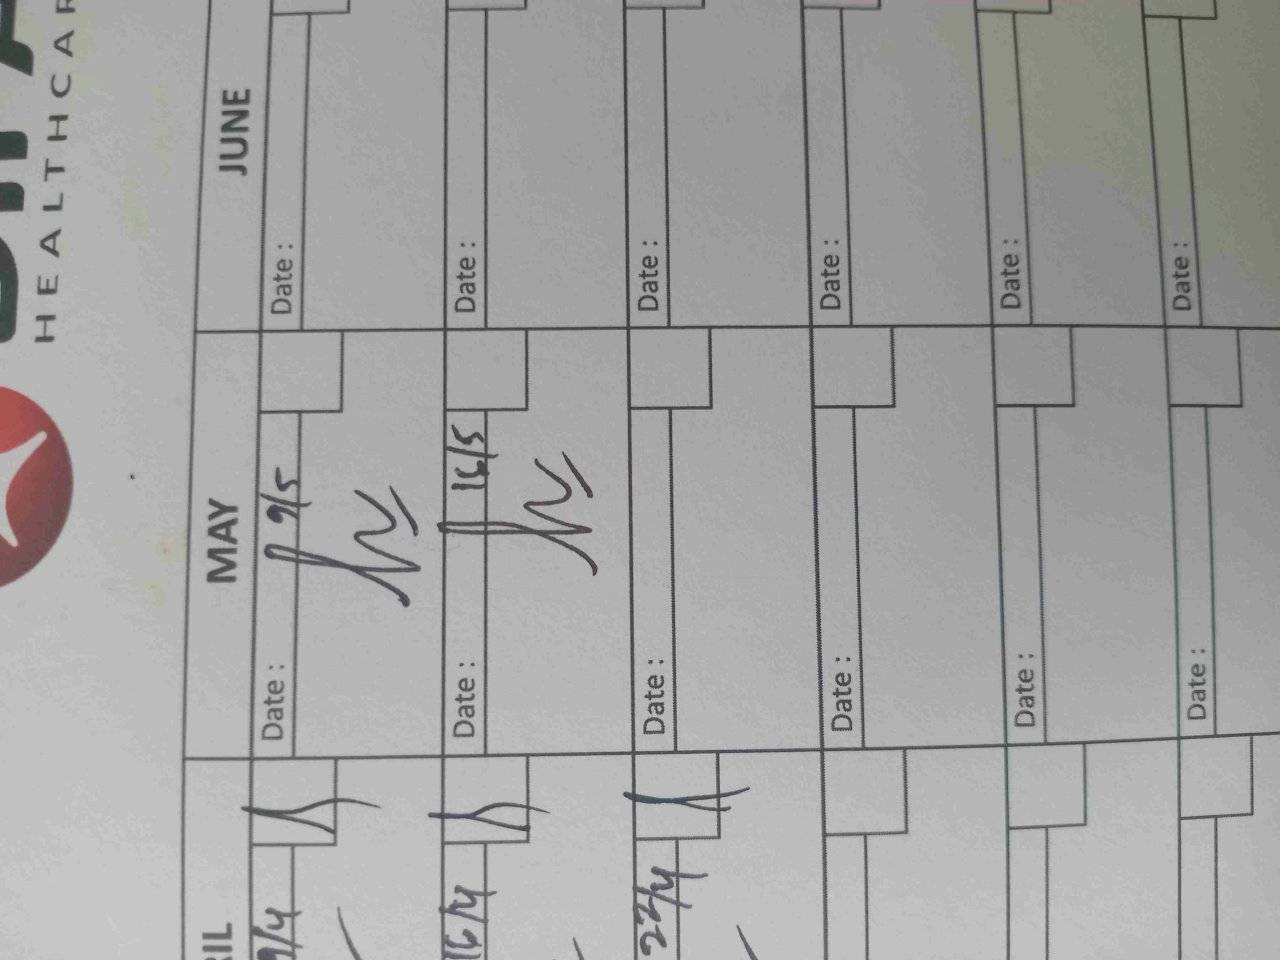 HEALTHCAR
RIL MAY JUNE
9/4 Date : 9/5 Date :
16/4 Date : 16/5 Date :
22/4 Date : Date :
Date : Date :
Date : Date :
Date : Date :